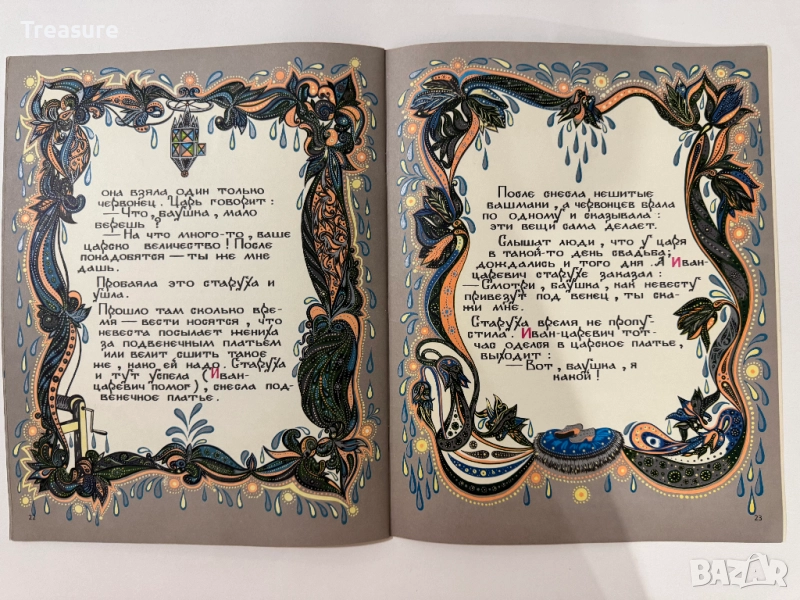 Treasure
она взяла один только
червонец. Царь говорит:
— Что, баушка, мало
берешь?
— На что много-то, ваше
царско величество! После
понадобятся — ты же мне
дашь.
Пробаяла это старуха и
ушла.
Прошло там сколько вре-
мя — вести носятся, что
невеста посылает жениха
за подвенечным платьем
или велит сшить такое
же, како ей надо. Старуха
и тут успела (Иван-
царевич помог), снесла под-
венечное платье.
22
После снесла нешитые
башмани, а червонцев брала
по одному и сказывала:
эти вещи сама делает.
Слышат люди, что у царя
в такой-то день свадьба;
дождались и того дня. А Иван-
царевич старухе заказал:
— Смотри, баушка, как невесту
привезут под венец, ты ска-
жи мне.
Старуха время не пропу-
стила. Иван-царевич тот-
час оделся в царское платье,
выходит:
— Вот, баушка, я
какой!
23
BAZAR